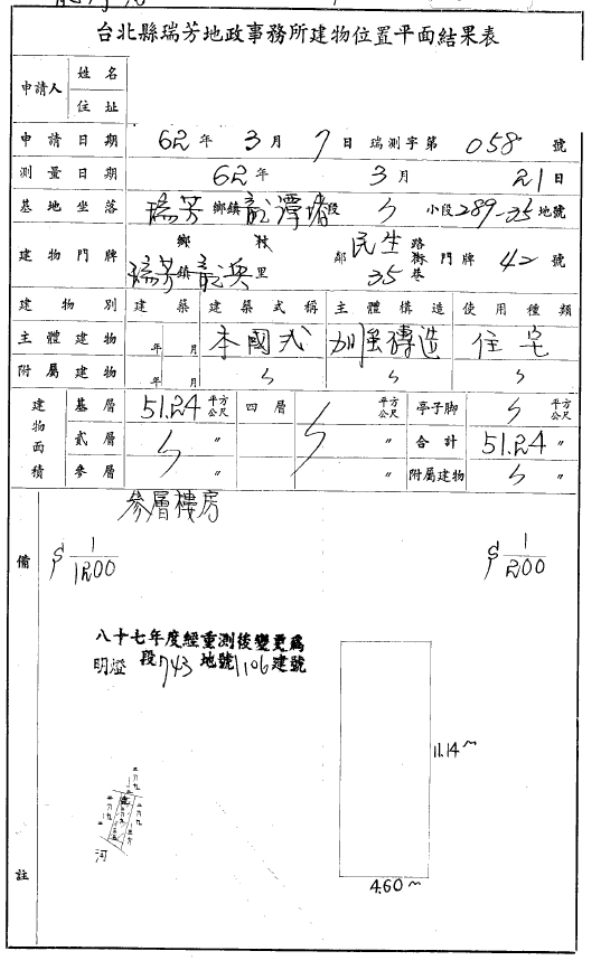 台北縣瑞芳地政事務所建物位置平面結果表
申請人 姓名
住址
申請日期 62年 3月 7日 瑞測字第 058 號
測量日期 62年 3月 21日
基地坐落 瑞芳 鄉鎮 龍潭堵 段 ㄣ 小段 289-35 地號
建物門牌 瑞芳 鄉鎮 村里 鄰 民生 路街 35 巷 門牌 42 號
建物別 建築 建築式稱 主體構造 使用種類
主體建物 年 月 本國式 加强磚造 住宅
附屬建物 年 月 ㄣ ㄣ ㄣ
建物面積 基層 51.24 平方公尺 四層 平方公尺 亭子脚 ㄣ 平方公尺
貳層 ㄣ 〃 ㄣ 〃 合計 51.24 〃
參層 〃 〃 附屬建物 ㄣ 〃
參層樓房
備註
S 1/1200
S 1/200
八十七年度經重測後變更為
明燈 段 743 地號 1106 建號
11.14 m
河
4.60 m